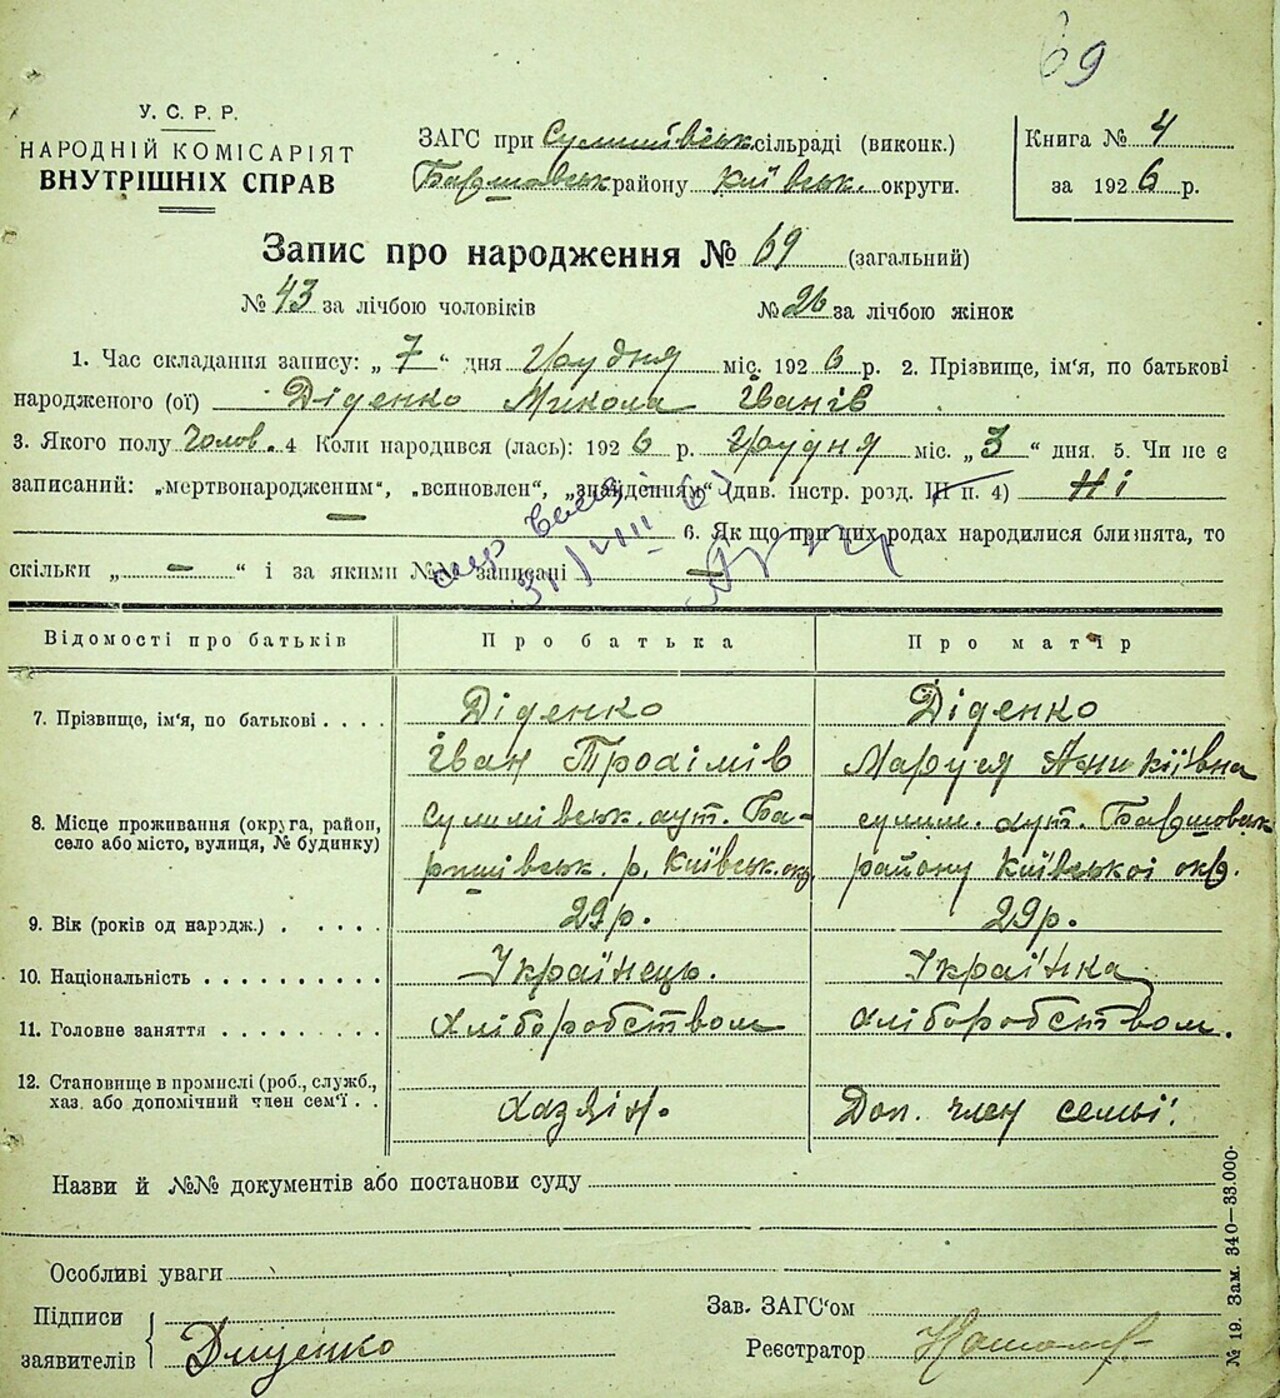 69
У. С. Р. Р.
НАРОДНІЙ КОМІСАРІЯТ
ВНУТРІШНІХ СПРАВ
ЗАГС при Сулимівськ. сільраді (виконк.)
Баришовськ району Київськ. округи.
Книга № 4
за 1926 р.
Запис про народження № 69 (загальний)
№ 43 за лічбою чоловіків № 26 за лічбою жінок
1. Час складання запису: „ 7 “ дня Грудня міс. 1926 р. 2. Прізвище, ім'я, по батькові
народженого (ої) Діденко Микола Іванів
3. Якого полу Чолов. 4 Коли народився (лась): 1926 р. Грудня міс. „ 3 “ дня. 5. Чи не є
записаний: „мертвонародженим“, „всиновлен“, „знайденням“ (див. інстр. розд. ІІІ п. 4) Ні
—
6. Як що при цих родах народилися близнята, то
скільки „ — “ і за якими №№ записані —
Відомості про батьків Про батька Про матір
7. Прізвище, ім'я, по батькові . . . . Діденко Діденко
Іван Трохимів Маруся Аникіївна
8. Місце проживання (округа, район, село або місто, вулиця, № будинку) Сулимівськ. хут. Ба- сулим. хут. Баришовськ
ришівськ. р. Київськ. окр. району Київської окр.
9. Вік (років од народж.) . . . . . 29 р. 29 р.
10. Національність . . . . . . . . . . Українець. Українка
11. Головне заняття . . . . . . . . . Хліборобством Хліборобством.
12. Становище в промислі (роб., служб., хаз. або допомічний член сем'ї . . Хазяїн. Доп. член семьї.
Назви й №№ документів або постанови суду
Особливі уваги
Підписи
заявителів Діденко
Зав. ЗАГС'ом
Реєстратор
№ 19. Зам. 340—33.000.